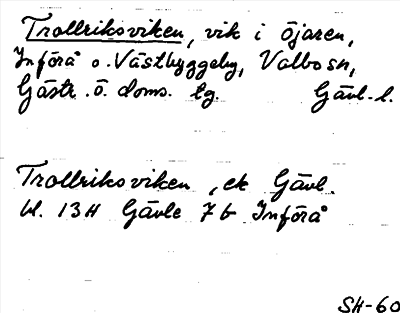 Trollriksviken, vik i Öjaren,
Införå o. Västbyggeby, Valbo sn,
Gästr. ö. doms. tg. Gävl. l.
Trollriksviken, ek Gävl.
bl. 13H Gävle 7b Införå
SH-60